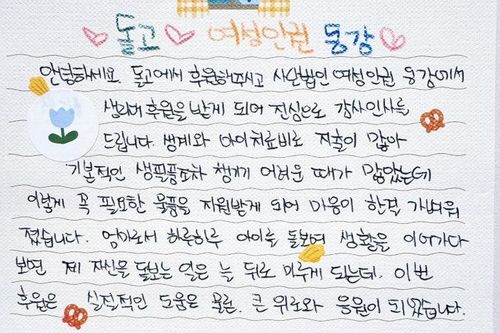 돌고 여성인권 동감
안녕하세요 돌고에서 후원해주시고 사단법인 여성인권 동감에서
생리대 후원을 받게 되어 진심으로 감사인사를
드립니다. 생계와 아이치료비로 지출이 많아
기본적인 생필품조차 챙기기 어려운 때가 많았는데
이렇게 꼭 필요한 물품을 지원받게 되어 마음이 한결 가벼워
졌습니다. 엄마로서 하루하루 아이를 돌보며 생활을 이어가다
보면 제 자신을 돌보는 일은 늘 뒤로 미루게 되는데, 이번
후원은 실질적인 도움은 물론, 큰 위로와 응원이 되었습니다.